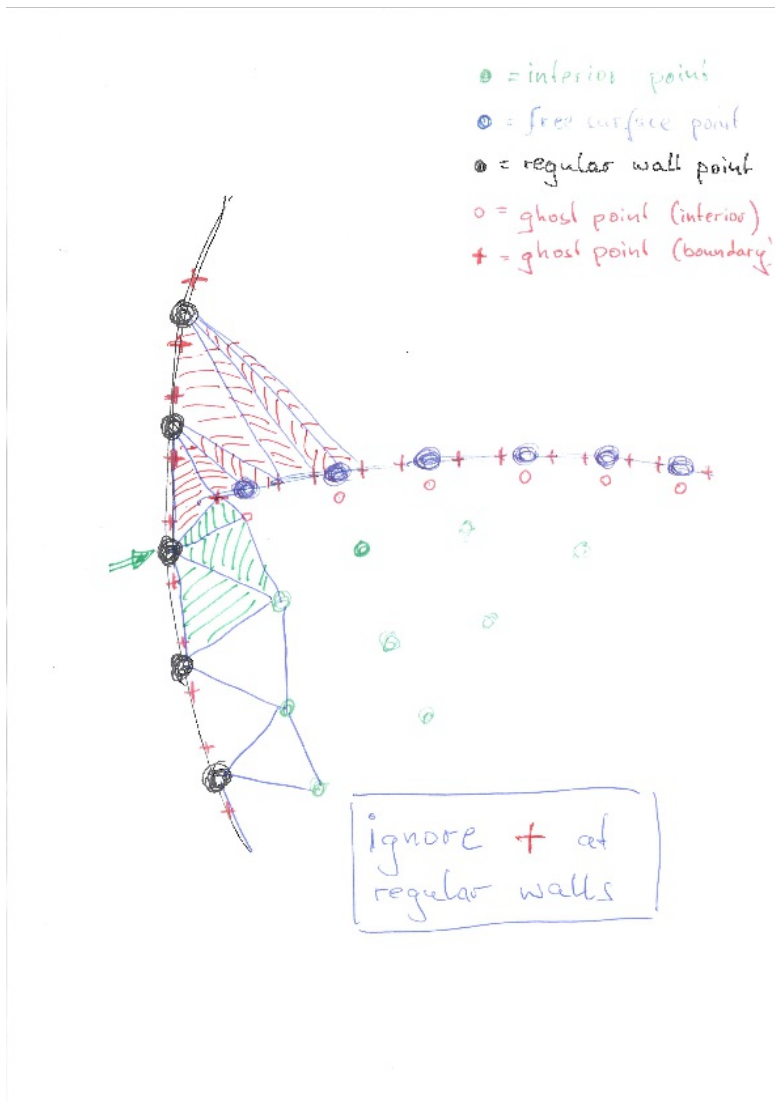 = interior point
= free surface point
= regular wall point
o = ghost point (interior)
+ = ghost point (boundary)
ignore + at
regular walls